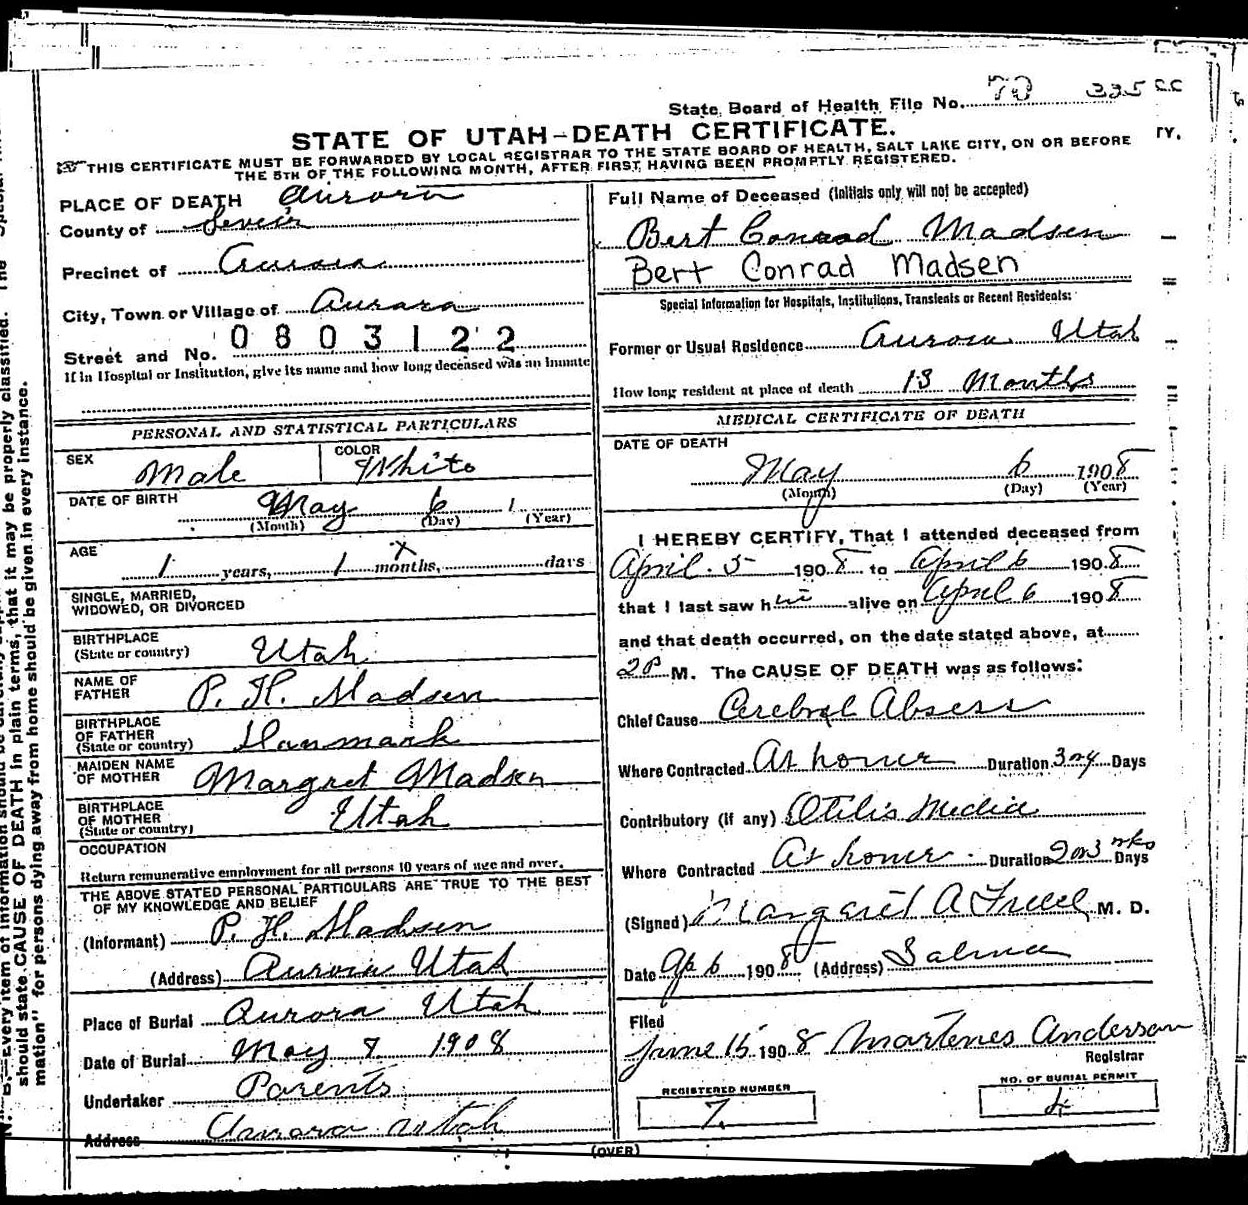 State Board of Health File No. 70 335 CC
STATE OF UTAH-DEATH CERTIFICATE.
THIS CERTIFICATE MUST BE FORWARDED BY LOCAL REGISTRAR TO THE STATE BOARD OF HEALTH, SALT LAKE CITY, ON OR BEFORE
TY.
THE 5TH OF THE FOLLOWING MONTH, AFTER FIRST HAVING BEEN PROMPTLY REGISTERED.
PLACE OF DEATH Aurora
County of Sevier
Precinct of Aurora
City, Town or Village of Aurara
0803122
Street and No.
If in Hospital or Institution, give its name and how long deceased was an inmate
PERSONAL AND STATISTICAL PARTICULARS
SEX Male
COLOR White
DATE OF BIRTH May 6 1
(Month) (Day) (Year)
AGE
1 years, 1 months, days
x
SINGLE, MARRIED,
WIDOWED, OR DIVORCED
BIRTHPLACE
(State or country) Utah
NAME OF
FATHER P. H. Madsen
BIRTHPLACE
OF FATHER
(State or country) Danmark
MAIDEN NAME
OF MOTHER Margret Madsen
BIRTHPLACE
OF MOTHER
(State or country) Utah
OCCUPATION
Return remunerative employment for all persons 10 years of age and over.
THE ABOVE STATED PERSONAL PARTICULARS ARE TRUE TO THE BEST
OF MY KNOWLEDGE AND BELIEF
(Informant) P. H. Madsen
(Address) Aurora Utah
Place of Burial Aurora Utah
Date of Burial May 8 1908
Undertaker Parents
Address Aurora Utah
Full Name of Deceased (Initials only will not be accepted)
Bert Conrad Madsen
Bert Conrad Madsen
Special Information for Hospitals, Institutions, Transients or Recent Residents:
Former or Usual Residence Aurora Utah
How long resident at place of death 13 Months
MEDICAL CERTIFICATE OF DEATH
DATE OF DEATH
May 6 1908
(Month) (Day) (Year)
I HEREBY CERTIFY, That I attended deceased from
April 5 1908 to April 6 1908
that I last saw him alive on April 6 1908
and that death occurred, on the date stated above, at
2P M. The CAUSE OF DEATH was as follows:
Chief Cause Cerebral Absess
Where Contracted At home Duration 3 Days
Contributory (if any) Otitis Media
Where Contracted At home Duration 2 or 3 wks Days
(Signed) Margaret A Freece M. D.
Date Ap 6 1908 (Address) Salina
Filed
June 15 1908 Martenes Anderson
Registrar
REGISTERED NUMBER
7.
NO. OF BURIAL PERMIT
4
(OVER)
should state CAUSE OF DEATH in plain terms, that it may be properly classified. The
mation" for persons dying away from home should be given in every instance.